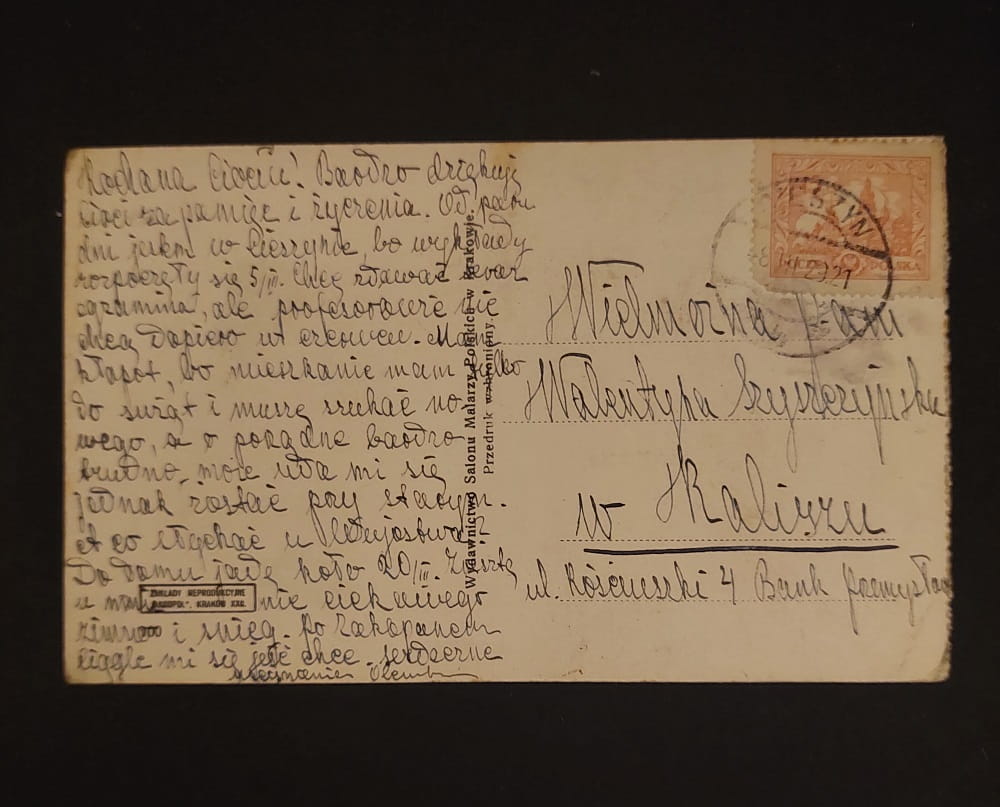 Kochana Ciociu! Bardzo dziękuję
Cioci za pamięć i życzenia. Od paru
dni jestem w Cieszynie, bo wykłady
rozpoczęły się 5/III. Chcę zdawać
egzamina, ale profesorowie nie
chcą dopiero w czerwcu. Mam
kłopot, bo mieszkanie mam tylko
do świąt i muszę szukać no-
wego, a o porządne bardzo
trudno, może uda mi się
jednak zostać przy starym.
A co słychać u Wujostwa?
Do domu jadę koło 20/III. Zresztą
u nie ciekawego
zimno i śnieg. Po Zakopanem
ciągle mi się jeść chce. Serdeczne
Wydawnictwo Salonu Malarzy Polskich w Krakowie.
Przedruk wzbroniony.
ZAKŁADY REPRODUKCYJNE
"AKROPOL". KRAKÓW XXII.
CIESZYN
21
POLSKA
Wielmożna Pani
Walentyna
w Kaliszu
ul. Kościuszki 4 Bank